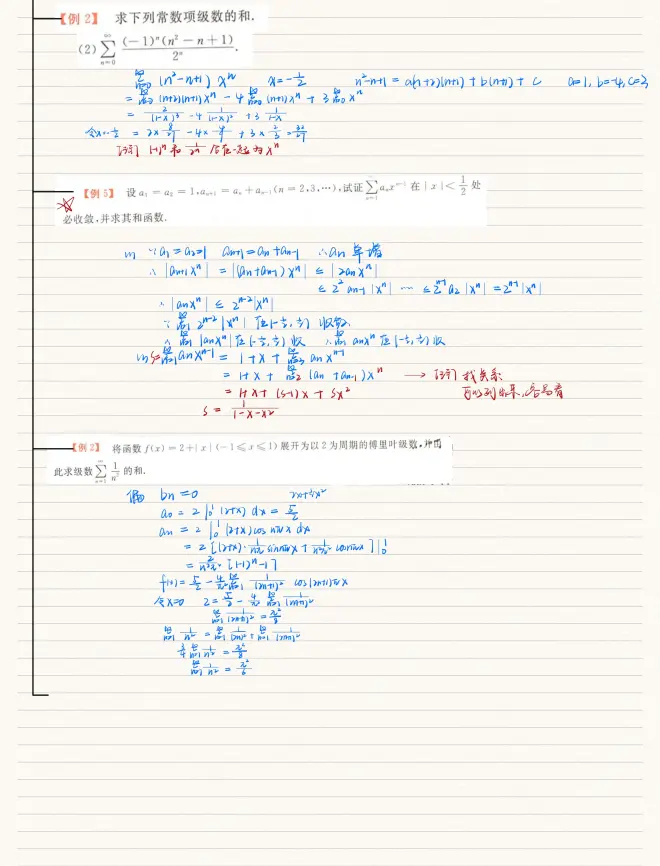 【例2】 求下列常数项级数的和.
(2) $\sum_{n=0}^{\infty} \frac{(-1)^n (n^2-n+1)}{2^n}$.
$\sum_{n=0}^{\infty} (n^2-n+1) x^n$  $x=-\frac{1}{2}$  $n^2-n+1 = a(n+2)(n+1)+b(n+1)+c$  $a=1, b=-4, c=3$
$= \sum_{n=0}^{\infty} (n+2)(n+1)x^n - 4\sum_{n=0}^{\infty} (n+1)x^n + 3\sum_{n=0}^{\infty} x^n$
$= \frac{2}{(1-x)^3} - 4\frac{1}{(1-x)^2} + 3\frac{1}{1-x}$
令$x=-\frac{1}{2}$ $= 2\times\frac{8}{27} - 4\times\frac{4}{9} + 3\times\frac{2}{3} = \frac{22}{27}$
$(-1)^n$ 和 $\frac{1}{2^n}$ 合在一起为 $x^n$
【例5】 设 $a_1=a_2=1, a_{n+1}=a_n+a_{n-1}(n=2,3,\cdots)$,试证 $\sum_{n=1}^{\infty} a_n x^{n-1}$ 在 $|x|<\frac{1}{2}$ 处
必收敛,并求其和函数.
(1) ∵ $a_1=a_2=1$  $a_{n+1}=a_n+a_{n-1}$  ∴ $a_n$ 单增
∴ $|a_{n+1}x^n| = |(a_n+a_{n-1})x^n| \le |2a_nx^n|$
$\le 2^2 a_{n-1}|x^n| \cdots \le 2^{n-1}a_2|x^n| = 2^{n-1}|x^n|$
∴ $|a_nx^n| \le 2^{n-2}|x^n|$
∵ $\sum_{n=1}^{\infty} 2^{n-2}|x^n|$ 在$(-\frac{1}{2},\frac{1}{2})$ 收敛
∴ $\sum_{n=1}^{\infty} |a_nx^n|$ 在$(-\frac{1}{2},\frac{1}{2})$收  ∴ $\sum_{n=1}^{\infty} a_nx^n$ 在$(-\frac{1}{2},\frac{1}{2})$收
(2) $S=\sum_{n=1}^{\infty} a_nx^{n-1} = 1+x+\sum_{n=3}^{\infty} a_nx^{n-1}$
$= 1+x+\sum_{n=2}^{\infty} (a_n+a_{n-1})x^n$ → 找关系
$= 1+x+(S-1)x+Sx^2$
$S = \frac{1}{1-x-x^2}$
【例2】 将函数 $f(x)=2+|x|(-1\le x\le 1)$ 展开为以2为周期的傅里叶级数,并由
此求级数 $\sum_{n=1}^{\infty} \frac{1}{n^2}$ 的和.
偶 $b_n=0$  $2x+\frac{1}{2}x^2$
$a_0 = 2\int_0^1 (2+x)dx = 5$
$a_n = 2\int_0^1 (2+x)\cos n\pi x dx$
$= 2[(2+x)\cdot\frac{1}{n\pi}\sin n\pi x + \frac{1}{n^2\pi^2}\cos n\pi x]|_0^1$
$= \frac{2}{n^2\pi^2}[(-1)^n-1]$
$f(x) = \frac{5}{2} - \frac{4}{\pi^2}\sum \frac{1}{(2n+1)^2}\cos(2n+1)\pi x$
令$x=0$  $2 = \frac{5}{2} - \frac{4}{\pi^2}\sum \frac{1}{(2n+1)^2}$
$\sum \frac{1}{(2n+1)^2} = \frac{\pi^2}{8}$
$\sum_{n=1}^{\infty} \frac{1}{n^2} = \sum_{n=1}^{\infty} \frac{1}{(2n)^2} + \sum \frac{1}{(2n+1)^2}$
$\frac{3}{4}\sum_{n=1}^{\infty} \frac{1}{n^2} = \frac{\pi^2}{8}$
$\sum_{n=1}^{\infty} \frac{1}{n^2} = \frac{\pi^2}{6}$